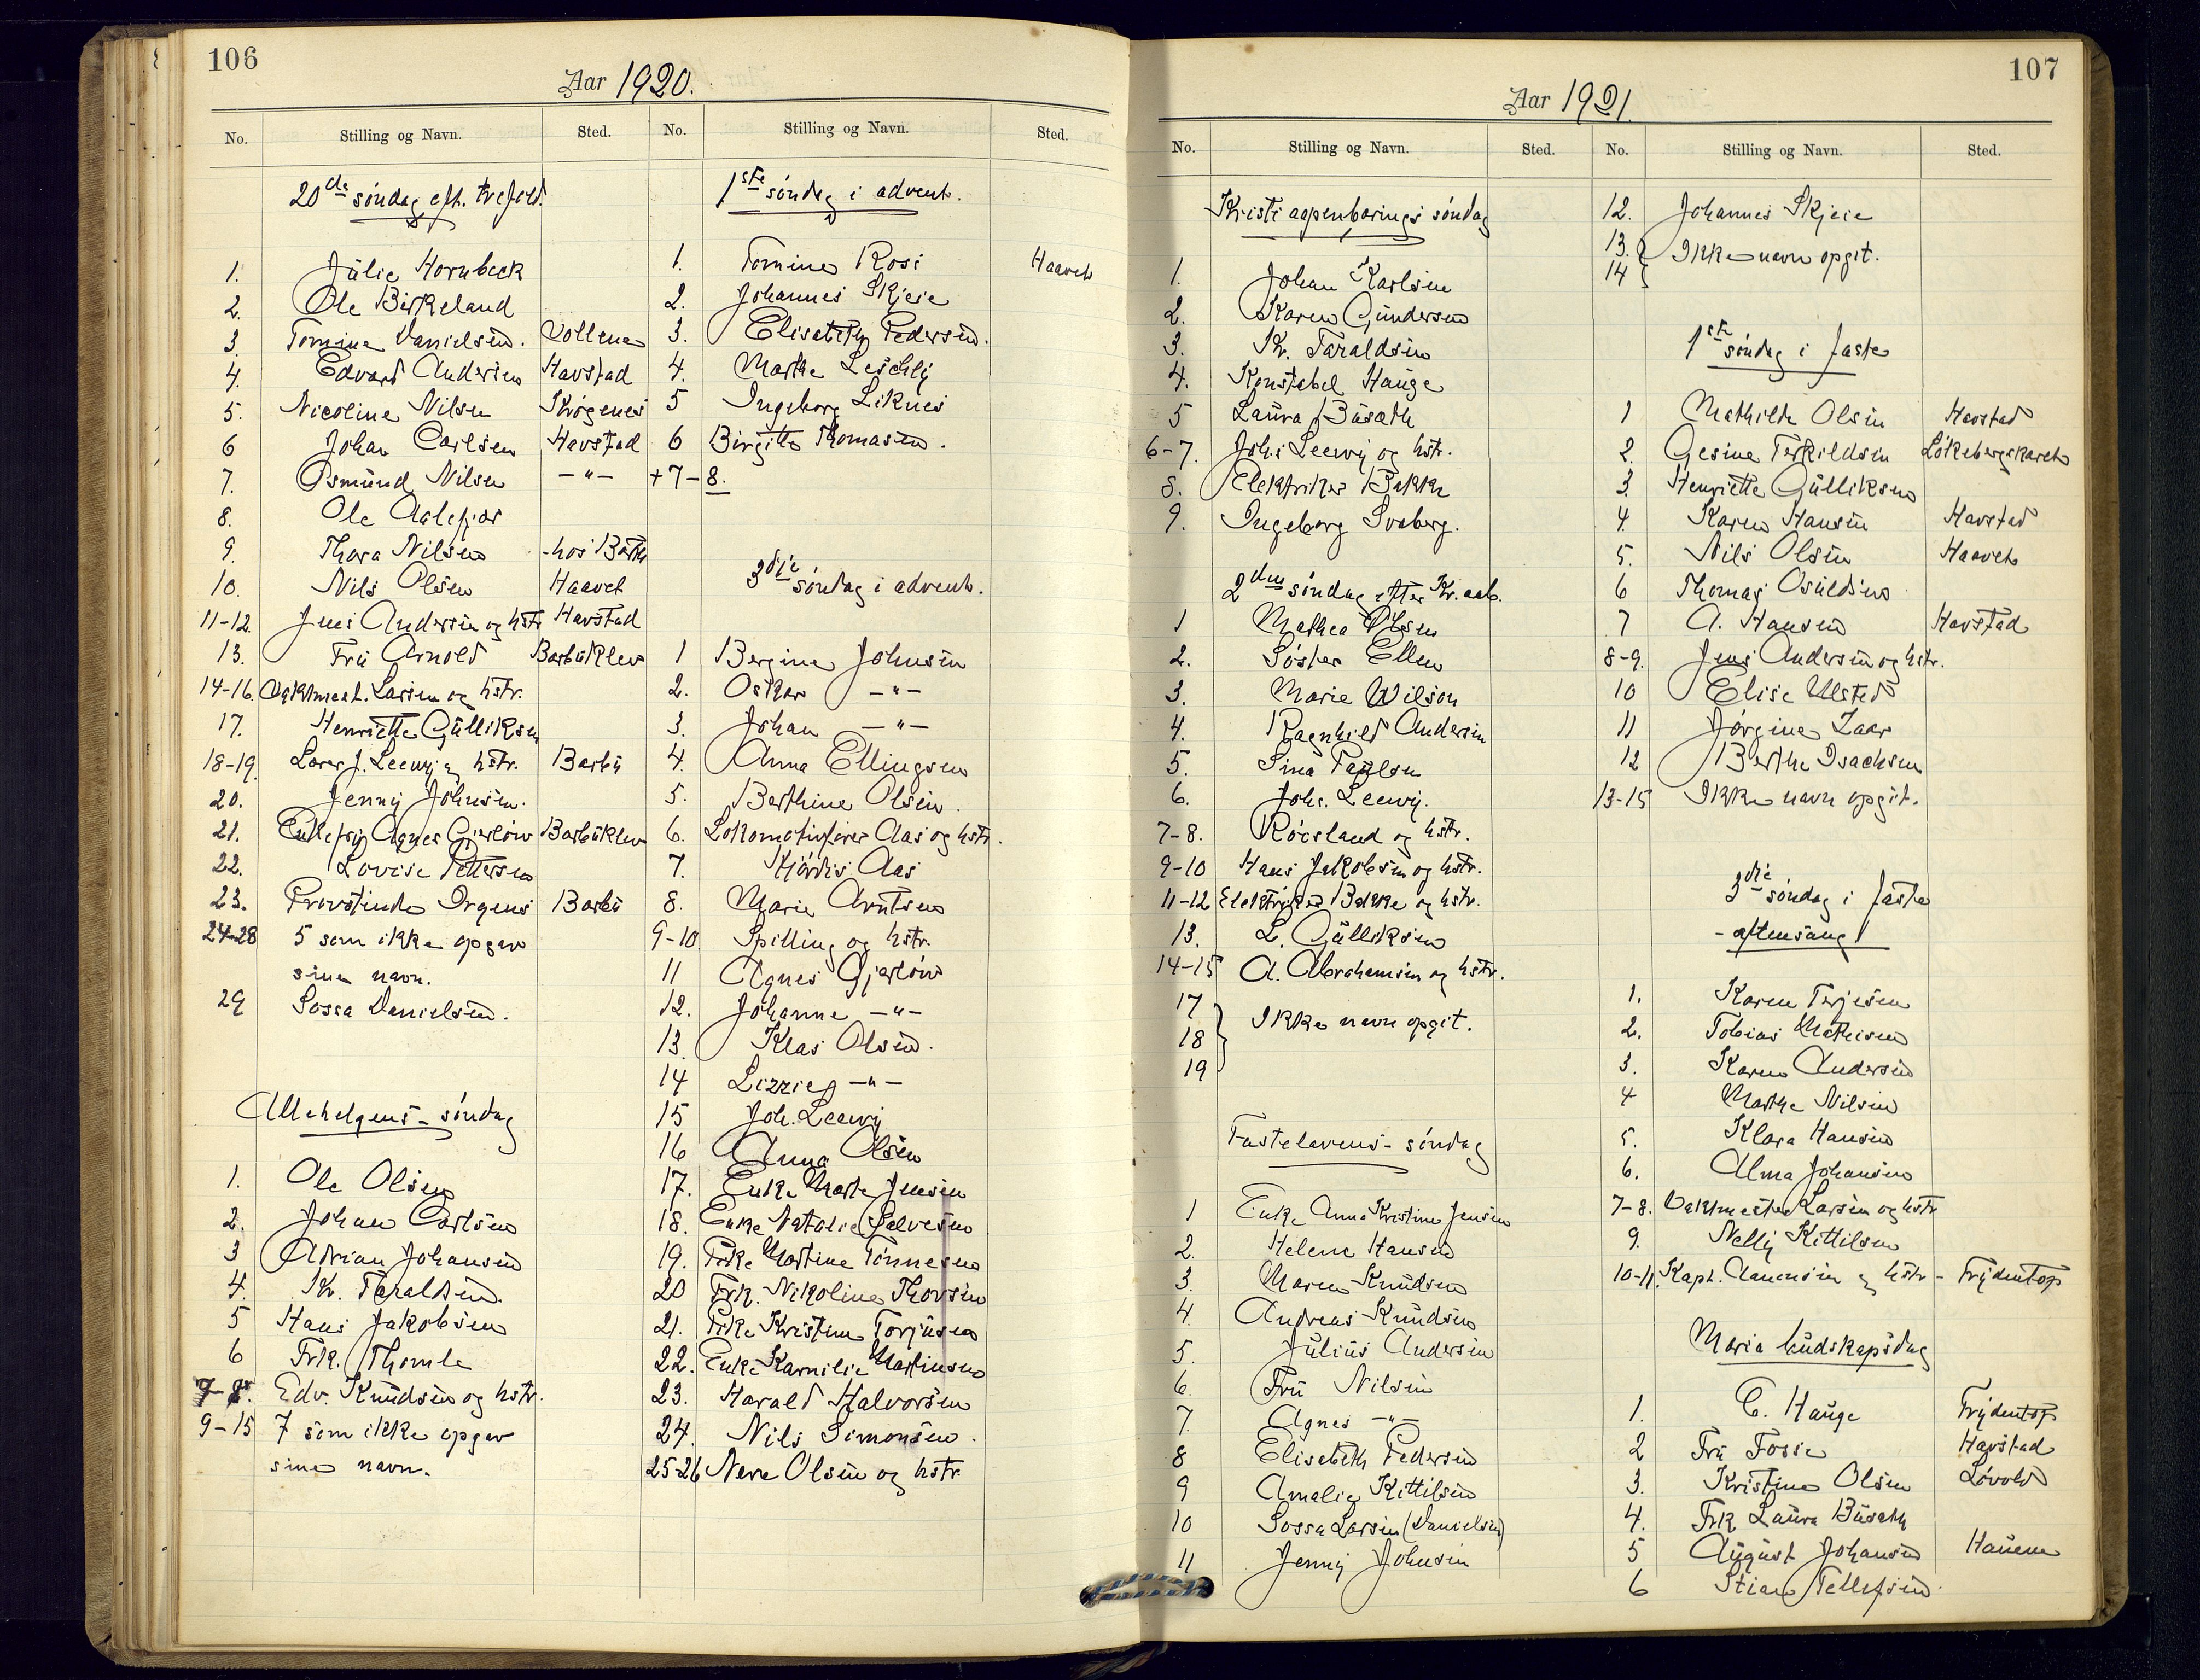 106
Aar 1920.
No. Stilling og Navn. Sted. No. Stilling og Navn. Sted.
20de søndag eft. trefold.
1. Julie Hornbeck
2. Ole Birkeland
3. Tomine Danielsen. Vollene
4. Edvard Andersen Havstad
5. Nicoline Nilsen Krøgenes
6 Johan Carlsen Havstad
7. Osmund Nilsen —"—
8. Ole Aalefjær
9. Thora Nilsen hos Barth
10. Nils Olsen Haavet
11-12. Jens Andersen og hstr Havstad
13. Fru Arnold Barbuklev
14-16. Vaktmest. Larsen og hstr.
17. Henriette Gulliksen
18-19. Lærer J. Leewy og hstr. Barbu
20. Jenny Johnsen.
21. Enkefru Agnes Gjerløw Barbuklev
22. Lovise Pettersen
23. Provstinde Irgens Barbu
24-28 5 som ikke opgav
sine navn.
29 Sossa Danielsen.
Allehelgens-søndag
1. Ole Olsen
2. Johan Carlsen
3 Adrian Johansen
4. Kr. Taraldsen.
5 Hans Jakobsen
6 Frk. Thomle
7-8. Edv. Knudsen og hstr.
9-15 7 som ikke opgav
sine navn.
1ste søndag i advent.
1. Tomine Rosi Haavet
2. Johannes Skjeie
3. Elisabeth Pedersen.
4. Marthe Leschly
5 Ingeborg Liknes
6 Birgitte Thomasen.
+7-8.
3die søndag i advent.
1 Bergine Johnsen
2. Oskar —"—
3. Johan —"—
4. Anna Ellingsen
5. Berthine Olsen.
6. Lokomotivfører Aas og hstr.
7. Hjørdis Aas
8. Marie Arntsen
9-10 Spilling og hstr.
11 Agnes Gjerløw
12. Johanne —"—
13. Klas Olsen.
14 Lizzie —"—
15 Joh. Leewy
16 Anna Olsen
17. Enke Marte Jensen
18. Enke Natalie Salvesen
19. Frke Martine Tønnesen
20 Frk. Nikoline Thorsen
21. Frke Kristine Torjusen
22. Enke Karnilie Martinsen
23. Harald Halvorsen
24. Nils Simonsen.
25-26 Neve Olsen og hstr.
107
Aar 1921.
No. Stilling og Navn. Sted. No. Stilling og Navn. Sted.
Kristi aapenbarings søndag
1. Johan Karlsen
2. Karen Gundersen
3. Kr. Taraldsen
4. Konstabel Hauge
5 Laura Busæth
6-7. Johs Leewy og hstr.
8. Elektriker Bakke
9. Ingeborg Svaberg.
2den søndag efter Kr. aab.
1 Mathea Olsen
2. Søster Ellen
3. Marie Wilson
4. Ragnhild Andersen
5. Sina Paulsen
6. Johs. Leewy.
7-8. Røesland og hstr.
9-10 Hans Jakobsen og hstr.
11-12 Elektriker Bakke og hstr.
13. L. Gulliksen
14-15 A. Abrahamsen og hstr.
17
18 Ikke navn opgit.
19
Fastelavens-søndag
1 Enke Anna Kristine Jensen
2. Helene Hansen
3. Maren Knudsen
4. Andreas Knudsen
5. Julius Andersen
6. Fru Nilsen
7. Agnes —"—
8 Elisabeth Pedersen
9 Amalie Kittilsen
10 Sossa Larsen (Danielsen)
11 Jenny Johnsen
12. Johannes Skjeie
13.
14 Ikke navn opgit.
1ste søndag i faste
1 Mathilde Olsen Havstad
2. Gesine Terkildsen Løkebergskaret
3. Henriette Gulliksen
4. Karen Hansen Havstad
5. Nils Olsen Haavet
6 Thomas Osuldsen
7 A. Hansen Havstad
8-9. Jens Andersen og hstr.
10 Elise Ulsted
11 Jørgine Zaar
12 Berthe Isachsen
13-15 Ikke navn opgit.
3die søndag i faste
- aftensang
1. Karen Terjesen
2. Tobias Mathisen
3. Karen Andersen
4 Marthe Nilsen
5. Klara Hansen
6. Alma Johansen
7-8. Vaktmester Larsen og hstr
9. Nelly Kittilsen
10-11. Kapt. Aanonsen og hstr - Frydentop
Maria budskapsdag
1. C. Hauge Frydentop
2 Fru Fosse Havstad
3. Kristine Olsen Løvold
4. Frk Laura Busæth
5 August Johansen Hauene
6 Stian Tellefsen.